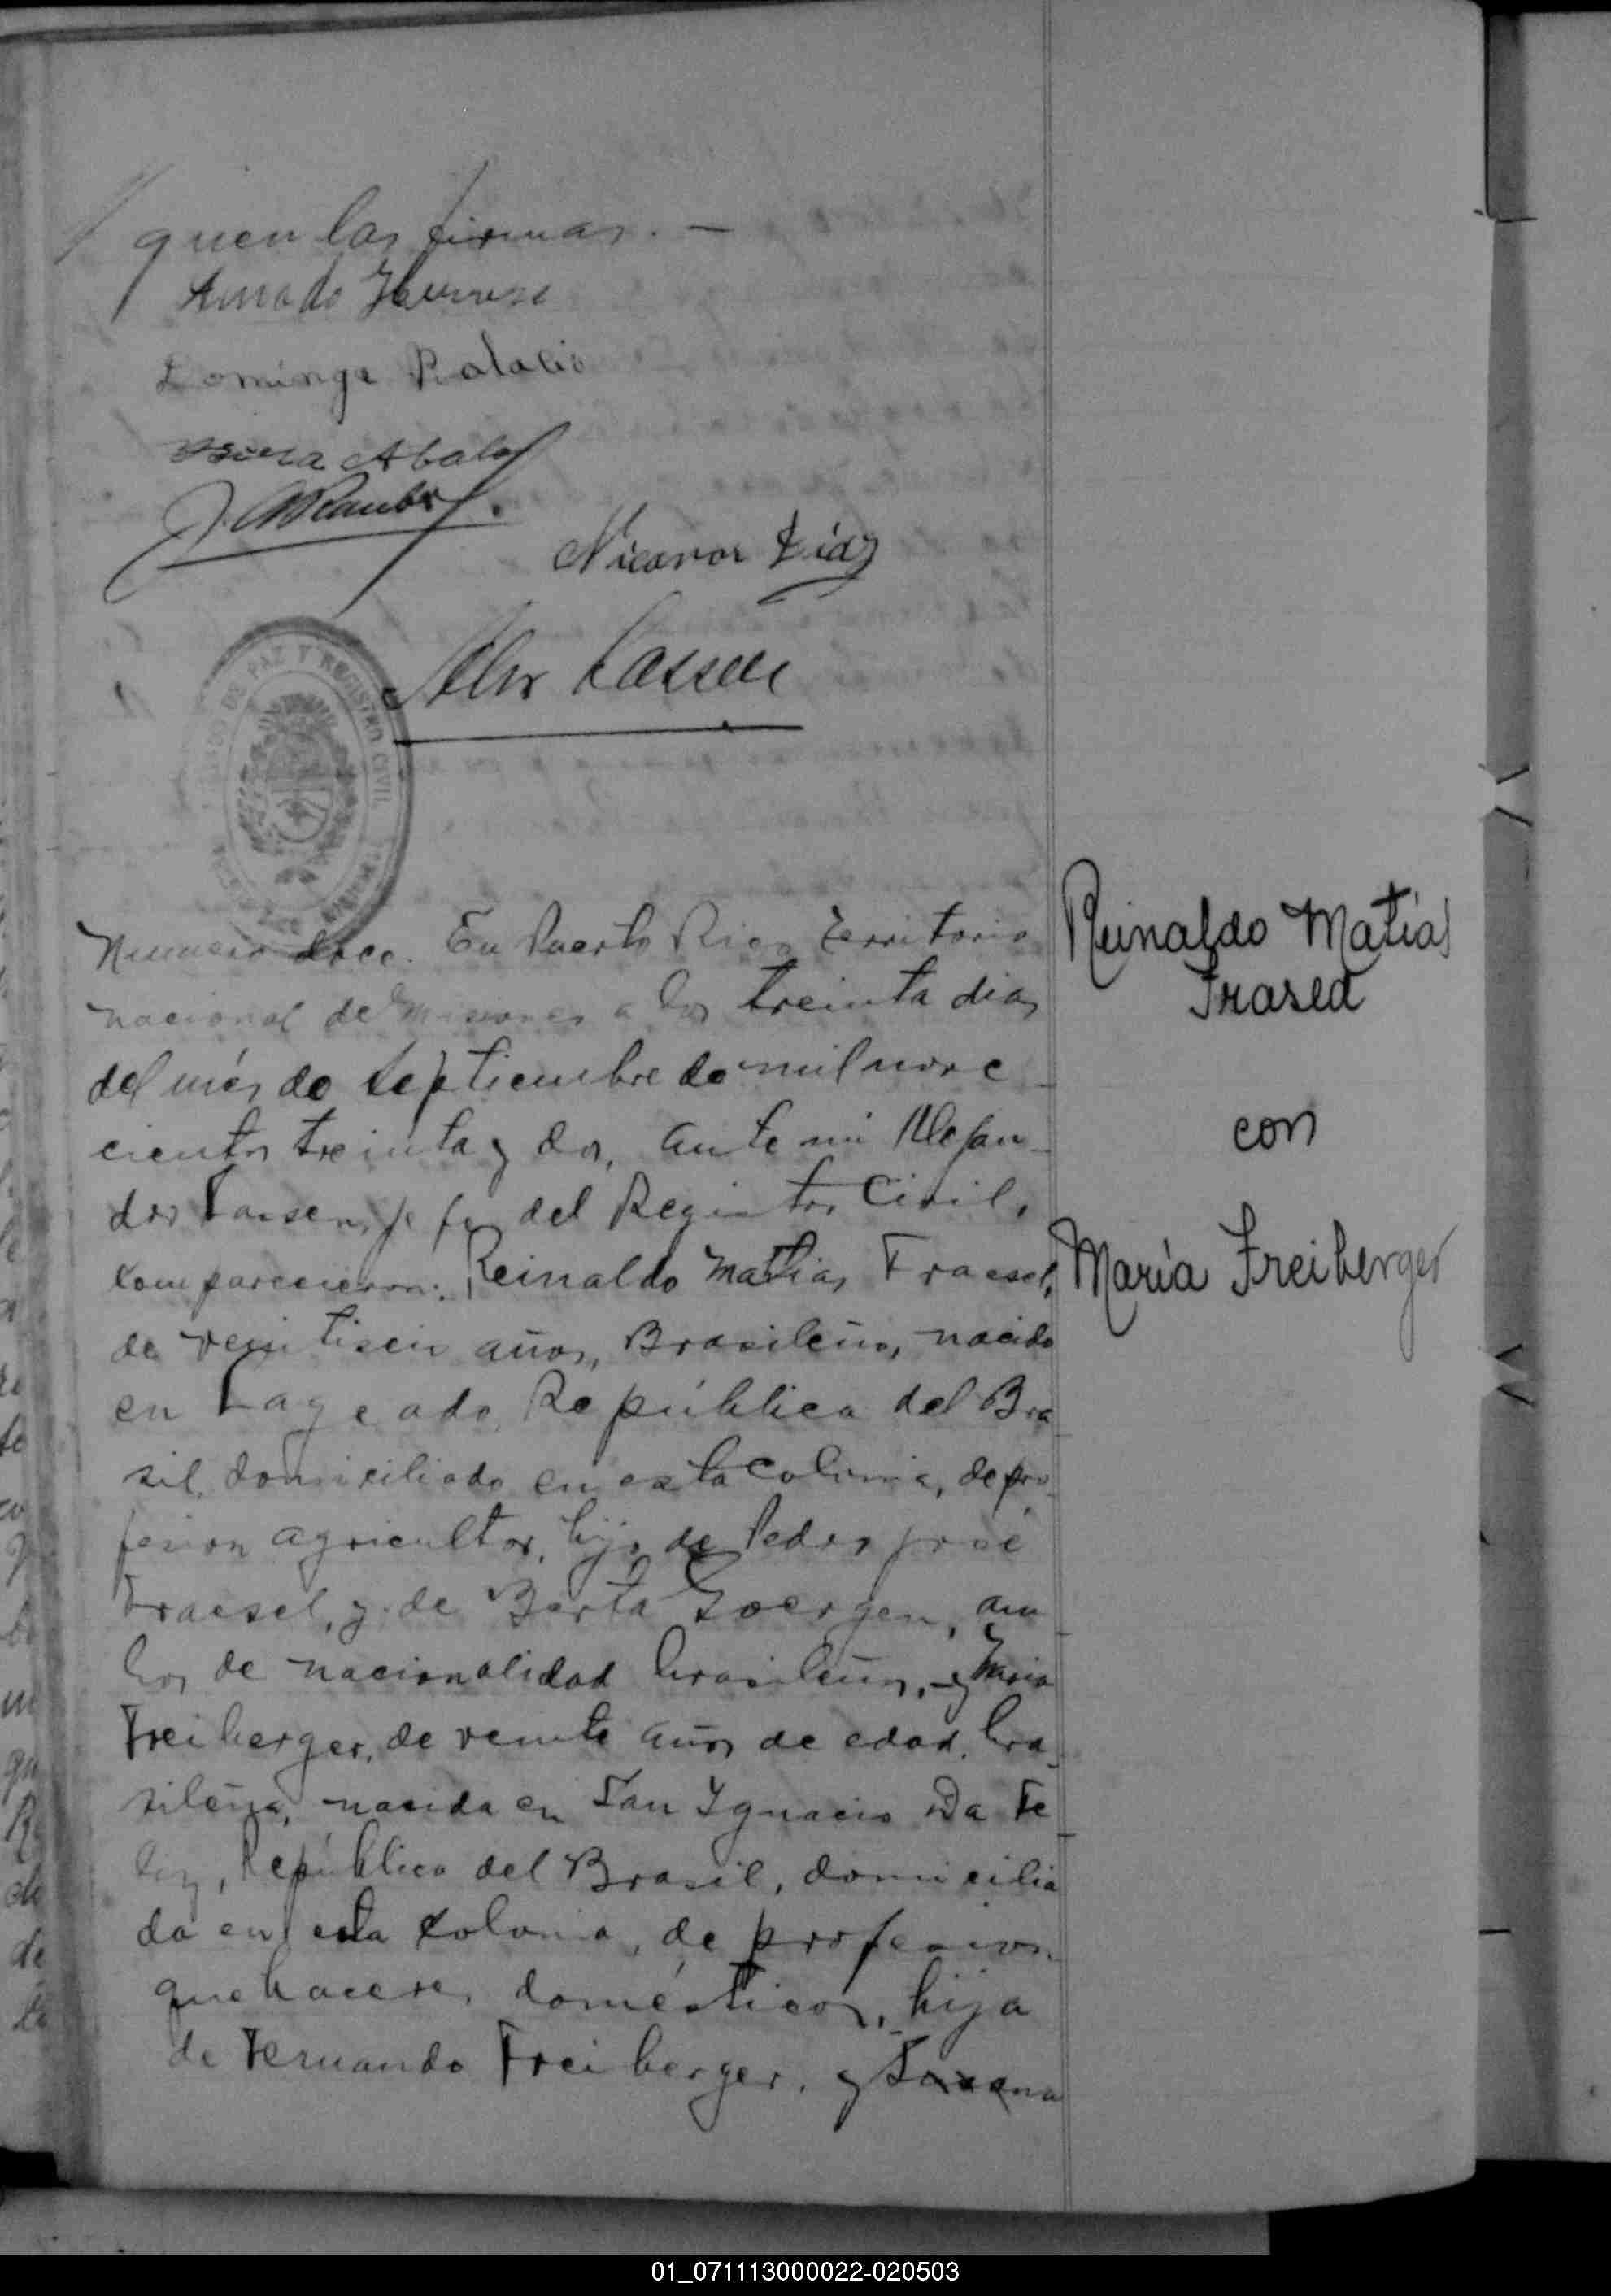 quen las firmas. —
Amado
Domingo Palacio
Abalo
J.
Nicanor Díaz
Alex Lassen
DE PAZ Y REGISTRO CIVIL
Reinaldo Matías
Frasea
con
María Freiberger
Numero doce. En Puerto Rico Territorio
nacional de Misiones a los treinta dias
del més de Septiembre de mil nove
cientos treinta y dos, ante mi Alejan
dro Lassen, jefe del Registro Civil,
comparecieron: Reinaldo Matias Fraesel,
de veintiseis años, Brasileño, nacido
en Lageado República del Bra
sil, domiciliado en esta Colonia, de pro
fesion agricultor, hijo de Pedro José
Fraesel, y de Berta Goergen, am
bos de nacionalidad brasileños, y Maria
Freiberger, de veinte años de edad, bra
sileña, nacida en San Ygnacio Da Fe
liz, República del Brasil, domicilia
da en esta colonia, de profesion
quehaceres domésticos, hija
de Fernando Freiberger, y
01_071113000022-020503